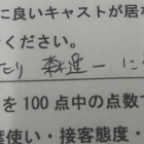 に良いキャストが居
ください。
たり 森進一 に
を 100 点中の点数で
使い・接客態度・